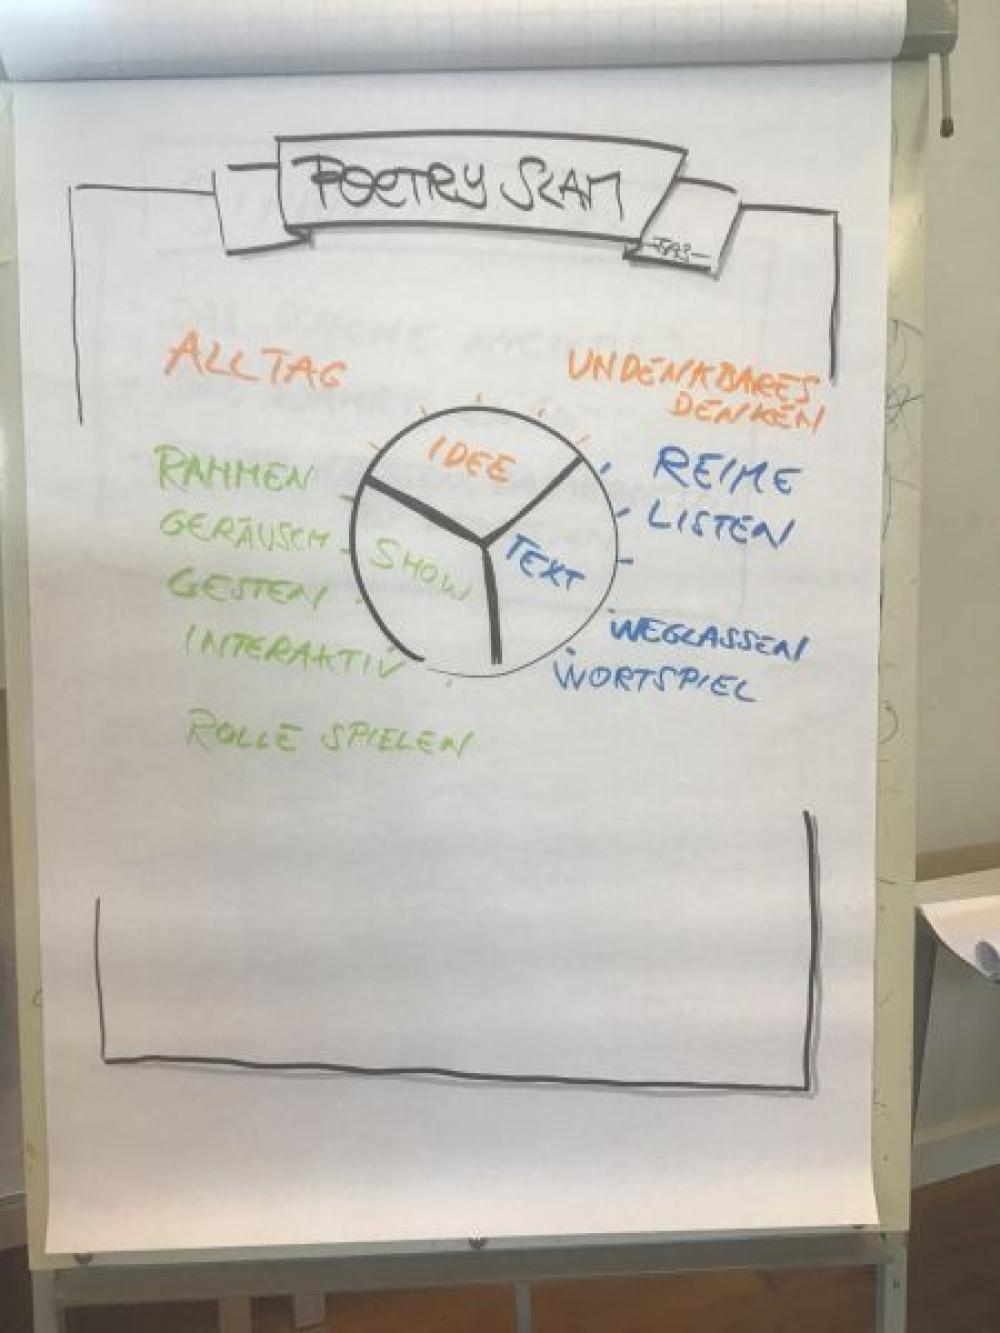 POETRY SLAM
ALLTAG
UNDENKBARES
DENKEN
IDEE
RAHMEN
GERÄUSCH
GESTEN
INTERAKTIV
ROLLE SPIELEN
SHOW
TEXT
REIME
LISTEN
WEGLASSEN
WORTSPIEL